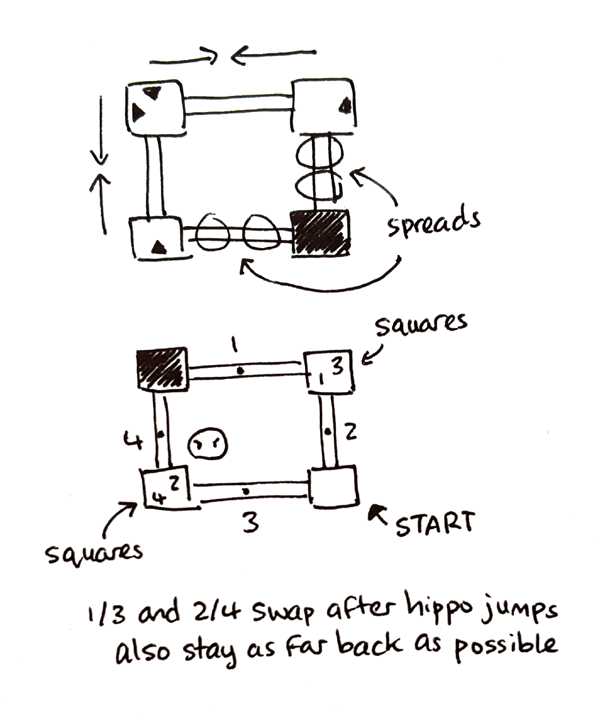 spreads
squares
1
1 3
4
2
4 2
3
START
squares
1/3 and 2/4 swap after hippo jumps
also stay as far back as possible